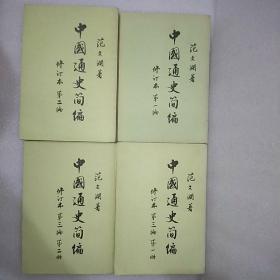 范文瀾著
中國通史简编
修订本 第二编
范文瀾著
中國通史简编
修订本 第一编
范文瀾著
中國通史简编
修订本 第三编 第二册
范文瀾著
中國通史简编
修订本 第三编 第一册